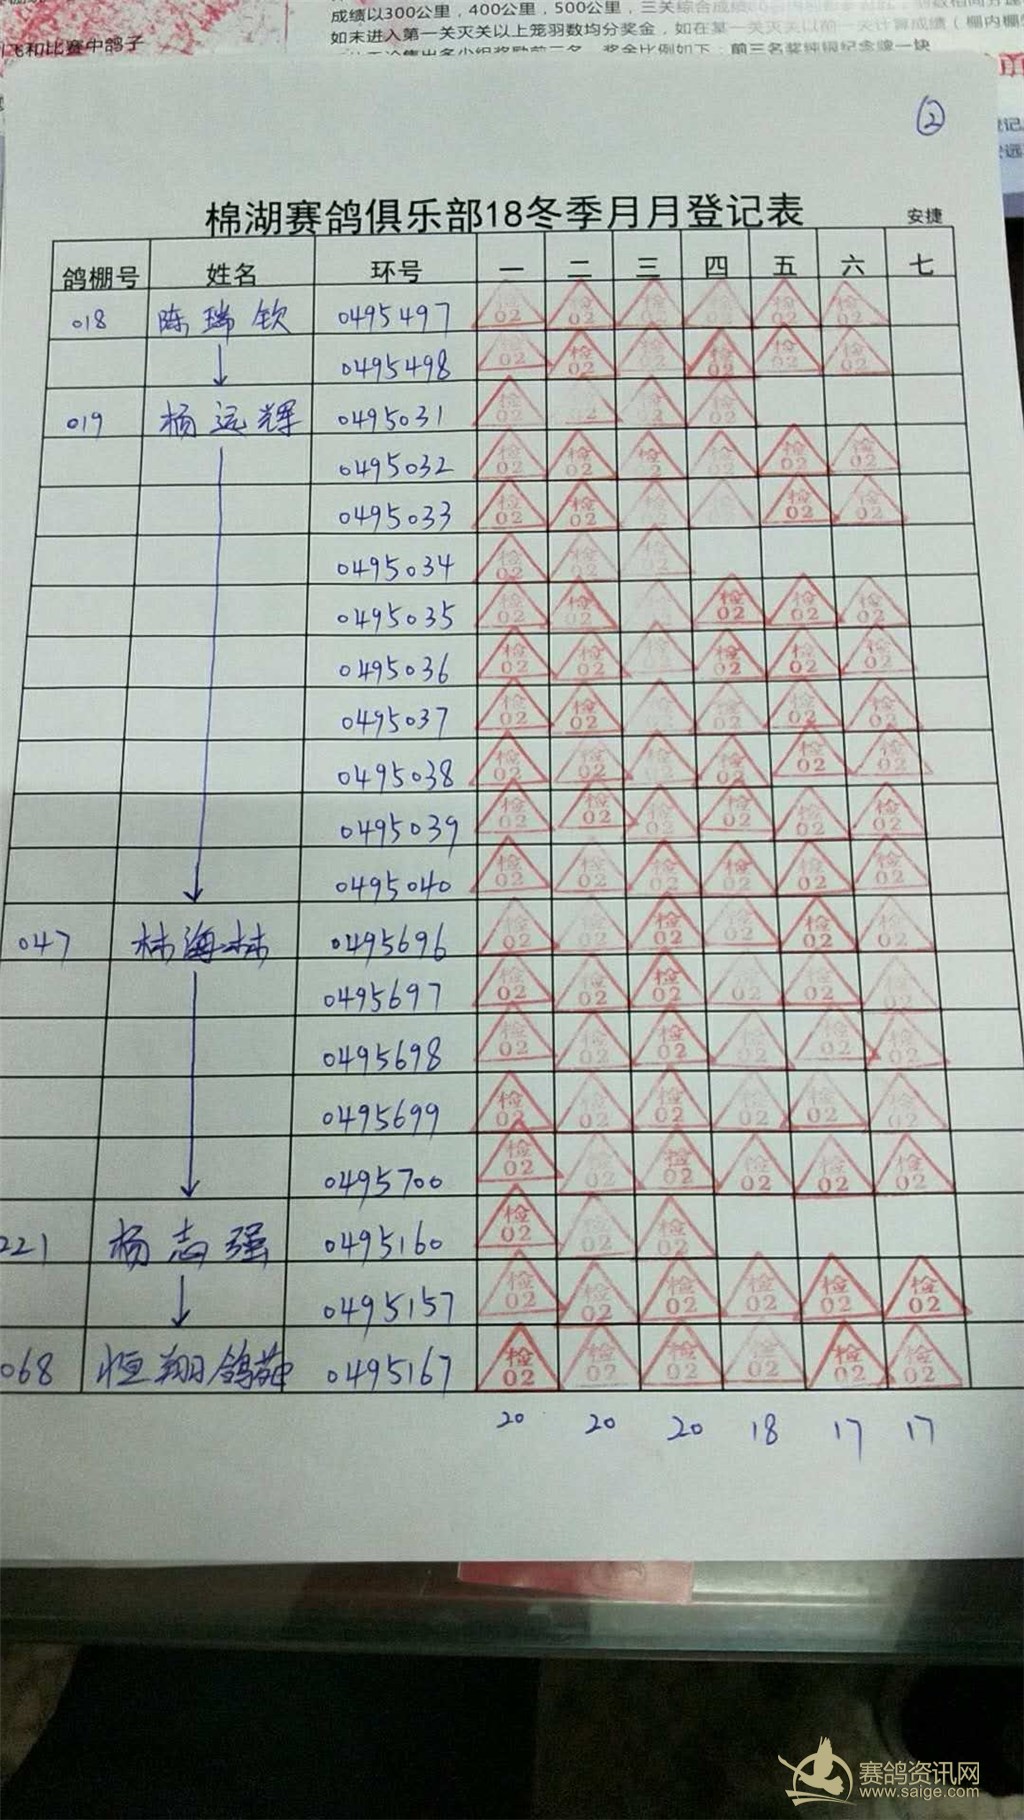 飞和比赛中鸽子
成绩以300公里，400公里，500公里，三关综合成绩
如未进入第一关灭关以上笼羽数均分奖金，如在某一关灭关以前一关计算成绩（棚内棚
前三名奖纯铜纪念牌一块
②
棉湖赛鸽俱乐部18冬季月月登记表 安捷
鸽棚号 姓名 环号 一 二 三 四 五 六 七
018 陈瑞钦 0495497 检02 检02 检02 检02 检02 检02
↓ 0495498 检02 检02 检02 检02 检02 检02
019 杨远辉 0495031 检02 检02 检02 检02
0495032 检02 检02 检02 检02 检02 检02
0495033 检02 检02 检02 检02 检02 检02
0495034 检02 检02 检02
0495035 检02 检02 检02 检02 检02 检02
0495036 检02 检02 检02 检02 检02 检02
0495037 检02 检02 检02 检02 检02 检02
0495038 检02 检02 检02 检02 检02 检02
0495039 检02 检02 检02 检02 检02 检02
↓ 0495040 检02 检02 检02 检02 检02 检02
047 林海林 0495696 检02 检02 检02 检02 检02 检02
0495697 检02 检02 检02 检02 检02 检02
0495698 检02 检02 检02 检02 检02 检02
0495699 检02 检02 检02 检02 检02 检02
↓ 0495700 检02 检02 检02 检02 检02 检02
221 杨志强 0495160 检02 检02 检02
↓ 0495157 检02 检02 检02 检02 检02 检02
068 恒翔鸽苑 0495167 检02 检02 检02 检02 检02 检02
20 20 20 18 17 17
赛鸽资讯网
www.saige.com